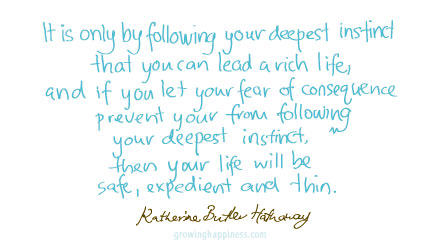 It is only by following your deepest instinct
that you can lead a rich life,
and if you let your fear of consequence
prevent your from following
your deepest instinct,
then your life will be
safe, expedient and thin.
Katherine Butler Hathaway
growinghappiness.com